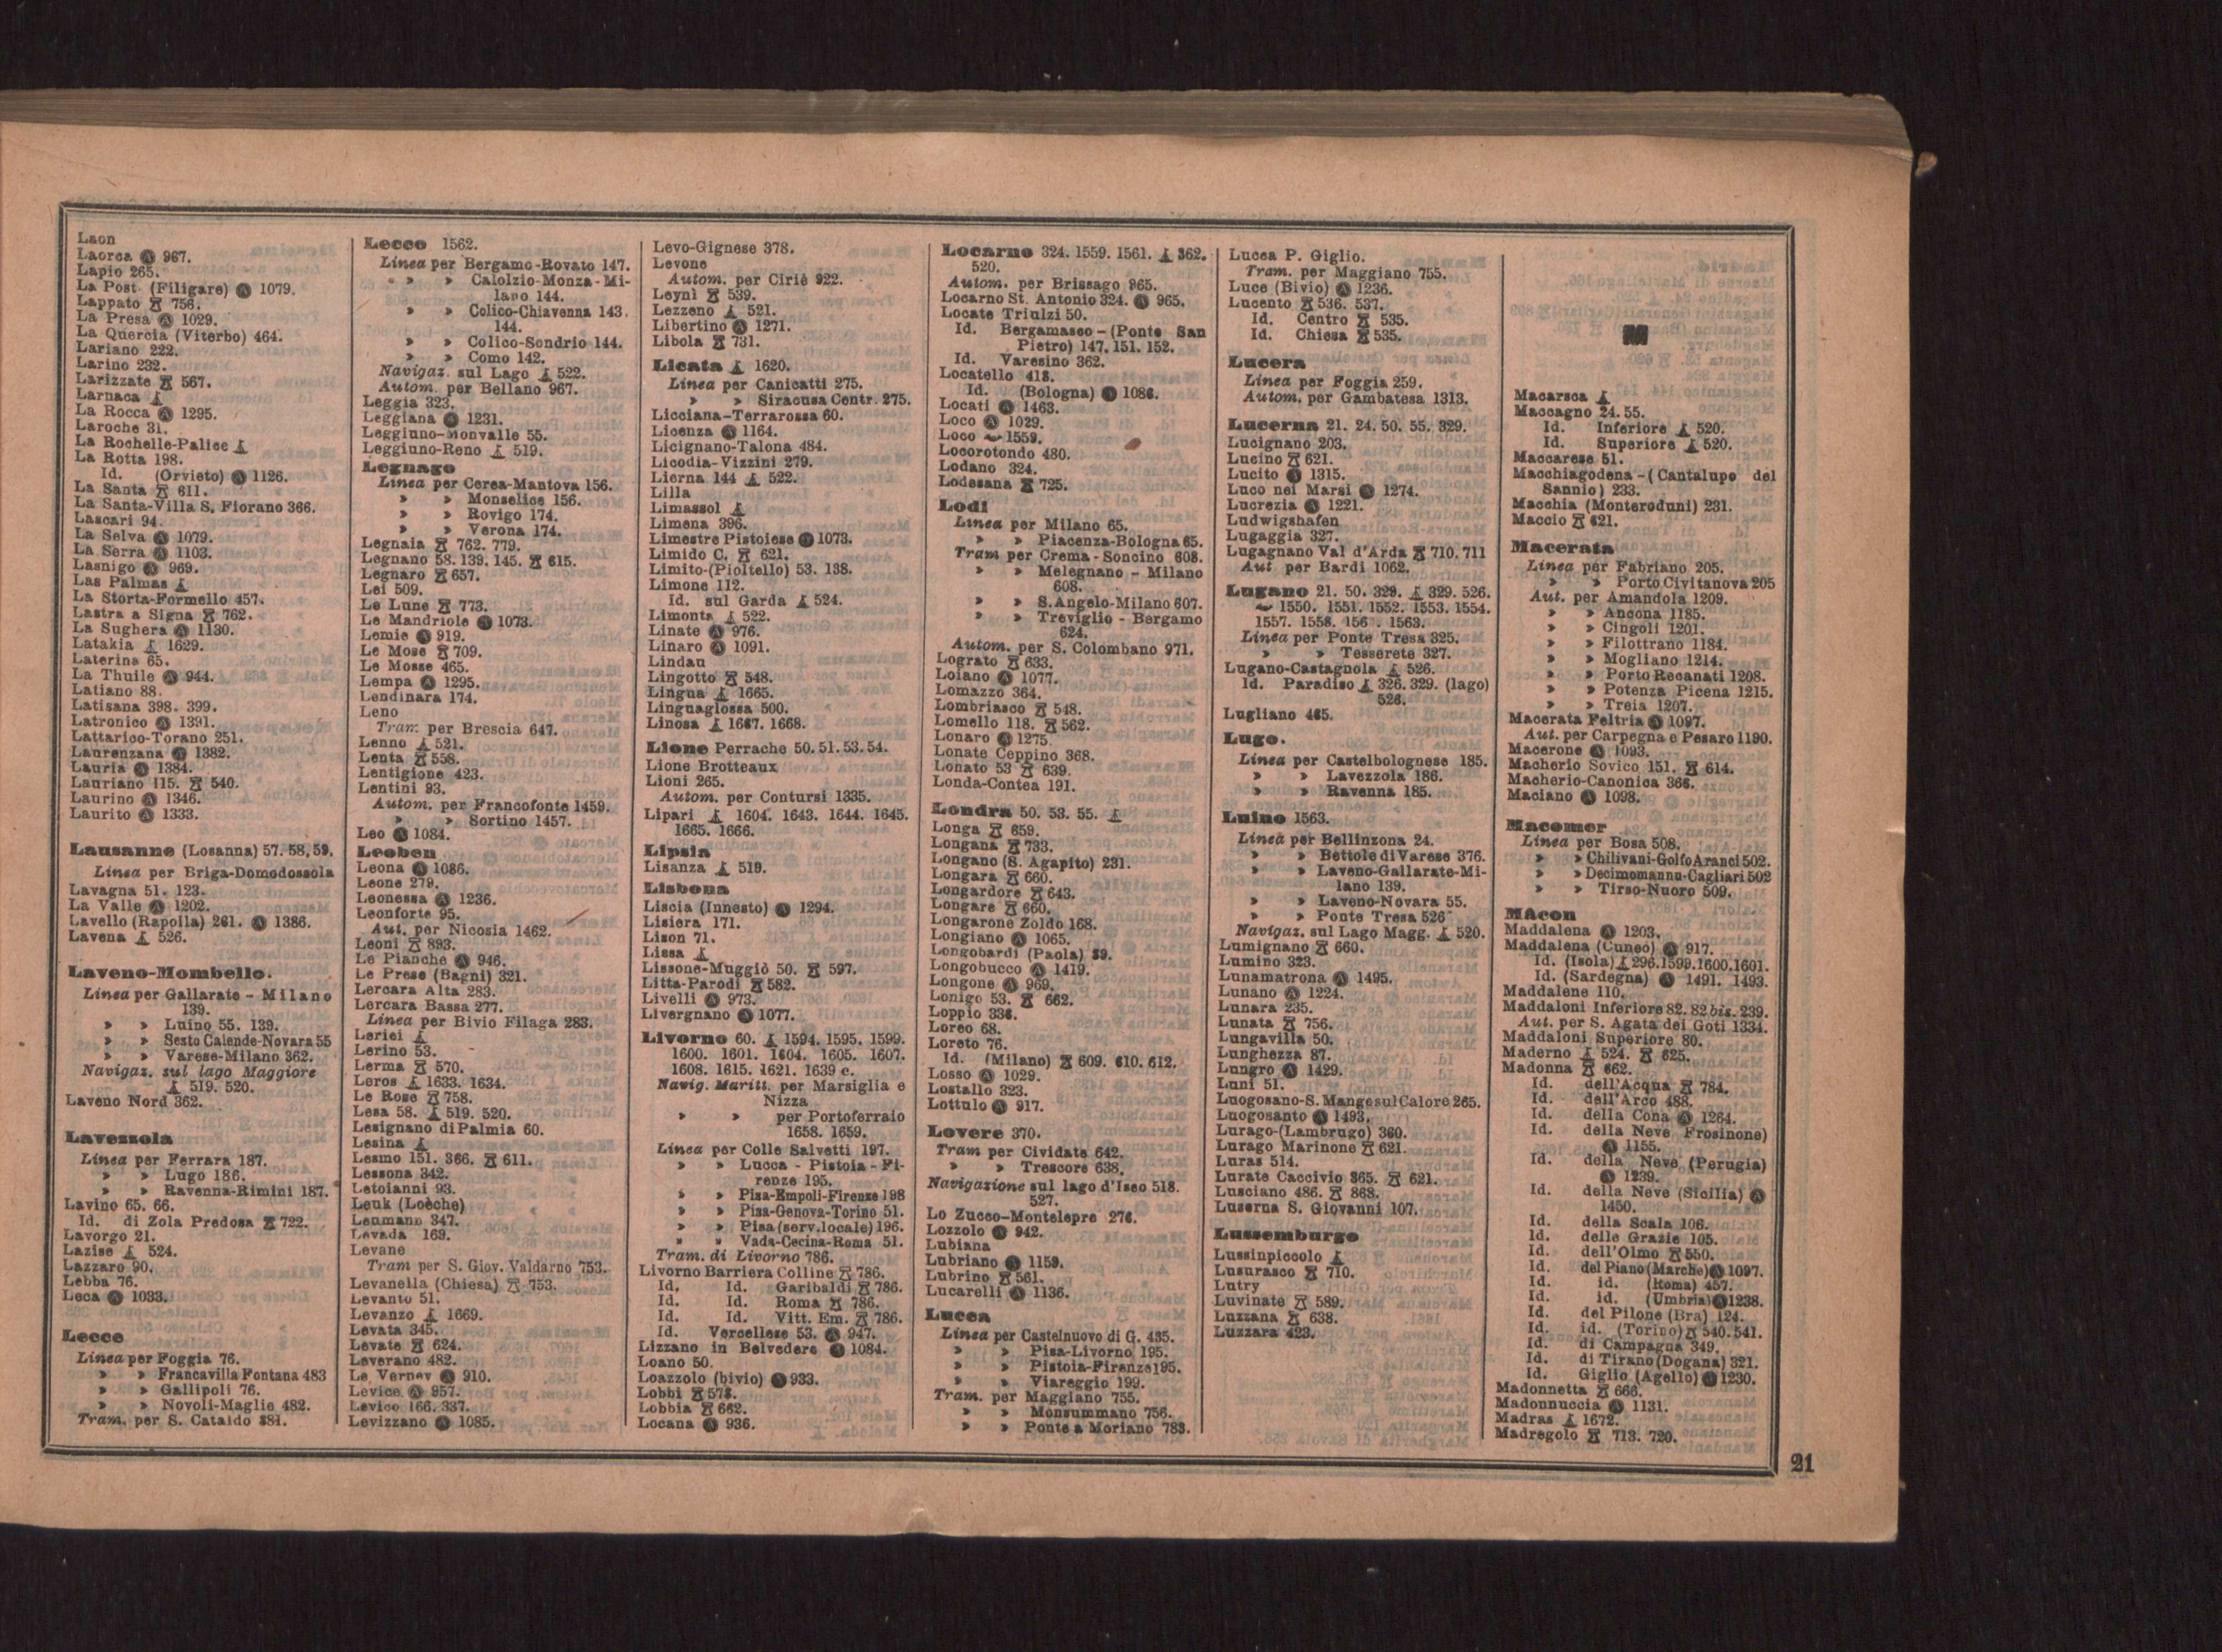 Laon
Laorca Ⓐ 967.
Lapio 265.
La Post (Filigare) Ⓐ 1079.
Lappato 756.
La Presa Ⓐ 1029.
La Quercia (Viterbo) 464.
Lariano 222.
Larino 232.
Larizzate 567.
Larnaca
La Rocca Ⓐ 1295.
Laroche 31.
La Rochelle-Palice
La Rotta 198.
Id. (Orvieto) Ⓐ 1126.
La Santa 611.
La Santa-Villa S. Fiorano 366.
Lascari 94.
La Selva Ⓐ 1079.
La Serra Ⓐ 1103.
Lasnigo Ⓐ 969.
Las Palmas
La Storta-Formello 457.
Lastra a Signa 762.
La Sughera Ⓐ 1130.
Latakia 1629.
Laterina 65.
La Thuile Ⓐ 944.
Latiano 88.
Latisana 398. 399.
Latronico Ⓐ 1391.
Lattarico-Torano 251.
Laurenzana Ⓐ 1382.
Lauria Ⓐ 1384.
Lauriano 115. 540.
Laurino Ⓐ 1346.
Laurito Ⓐ 1333.
Lausanne (Losanna) 57. 58, 59.
Linea per Briga-Domodossola
Lavagna 51. 123.
La Valle Ⓐ 1202.
Lavello (Rapolla) 261. Ⓐ 1386.
Lavena 526.
Laveno-Mombello.
Linea per Gallarate - Milano
139.
» » Luino 55. 139.
» » Sesto Calende-Novara 55
» » Varese-Milano 362.
Navigaz. sul lago Maggiore
519. 520.
Laveno Nord 362.
Lavezzola
Linea per Ferrara 187.
» » Lugo 186.
» » Ravenna-Rimini 187.
Lavino 65. 66.
Id. di Zola Predosa 722.
Lavorgo 21.
Lazise 524.
Lazzaro 90.
Lebba 76.
Leca Ⓐ 1033.
Lecce
Linea per Foggia 76.
» » Francavilla Fontana 483
» » Gallipoli 76.
» » Novoli-Maglie 482.
Tram. per S. Cataldo 881.
Lecco 1562.
Linea per Bergamo-Rovato 147.
» » Calolzio-Monza-Mi-
lano 144.
» » Colico-Chiavenna 143.
144.
» » Colico-Sondrio 144.
» » Como 142.
Navigaz. sul Lago 522.
Autom. per Bellano 967.
Leggia 323.
Leggiana Ⓐ 1231.
Leggiuno-Monvalle 55.
Leggiuno-Reno 519.
Legnago
Linea per Cerea-Mantova 156.
» » Monselice 156.
» » Rovigo 174.
» » Verona 174.
Legnaia 762. 779.
Legnano 58. 139. 145. 615.
Legnaro 657.
Lei 509.
Le Lune 773.
Le Mandriole Ⓐ 1073.
Lemie Ⓐ 919.
Le Mose 709.
Le Mosse 465.
Lempa Ⓐ 1295.
Lendinara 174.
Leno
Tram. per Brescia 647.
Lenno 521.
Lenta 558.
Lentigione 423.
Lentini 93.
Autom. per Francofonte 1459.
» » Sortino 1457.
Leo Ⓐ 1084.
Leoben
Leona Ⓐ 1086.
Leone 279.
Leonessa Ⓐ 1236.
Leonforte 95.
Aut. per Nicosia 1462.
Leoni 893.
Le Pianche Ⓐ 946.
Le Prese (Bagni) 321.
Lercara Alta 283.
Lercara Bassa 277.
Linea per Bivio Filaga 283.
Lerici
Lerino 53.
Lerma 570.
Leros 1633. 1634.
Le Rose 758.
Lesa 58. 519. 520.
Lesignano di Palmia 60.
Lesina
Lesmo 151. 366. 611.
Lessona 342.
Letoianni 93.
Leuk (Loèche)
Leumann 347.
Levada 169.
Levane
Tram per S. Giov. Valdarno 753.
Levanella (Chiesa) 753.
Levanto 51.
Levanzo 1669.
Levata 345.
Levate 624.
Leverano 482.
Le Verney Ⓐ 910.
Levice Ⓐ 957.
Levico 166. 337.
Levizzano Ⓐ 1085.
Levo-Gignese 378.
Levone
Autom. per Ciriè 922.
Leynì 539.
Lezzeno 521.
Libertino Ⓐ 1271.
Libola 731.
Licata 1620.
Linea per Canicattì 275.
» » Siracusa Centr. 275.
Licciana-Terrarossa 60.
Licenza Ⓐ 1164.
Licignano-Talona 484.
Licodia-Vizzini 279.
Lierna 144 522.
Lilla
Limassol
Limena 396.
Limestre Pistoiese Ⓐ 1073.
Limido C. 621.
Limito-(Pioltello) 53. 138.
Limone 112.
Id. sul Garda 524.
Limonta 522.
Linate Ⓐ 976.
Linaro Ⓐ 1091.
Lindau
Lingotto 548.
Lingua 1665.
Linguaglossa 500.
Linosa 1667. 1668.
Lione Perrache 50. 51. 53. 54.
Lione Brotteaux
Lioni 265.
Autom. per Contursi 1335.
Lipari 1604. 1643. 1644. 1645.
1665. 1666.
Lipsia
Lisanza 519.
Lisbona
Liscia (Innesto) Ⓐ 1294.
Lisiera 171.
Lison 71.
Lissa
Lissone-Muggiò 50. 597.
Litta-Parodi 582.
Livelli Ⓐ 973.
Livergnano Ⓐ 1077.
Livorno 60. 1594. 1595. 1599.
1600. 1601. 1604. 1605. 1607.
1608. 1615. 1621. 1639 e.
Navig. Maritt. per Marsiglia e
Nizza
» » per Portoferraio
1658. 1659.
Linea per Colle Salvetti 197.
» » Lucca - Pistoia - Fi-
renze 195.
» » Pisa-Empoli-Firenze 198
» » Pisa-Genova-Torino 51.
» » Pisa (serv. locale) 196.
» » Vada-Cecina-Roma 51.
Tram. di Livorno 786.
Livorno Barriera Colline 786.
Id. Id. Garibaldi 786.
Id. Id. Roma 786.
Id. Id. Vitt. Em. 786.
Id. Vercellese 53. Ⓐ 947.
Lizzano in Belvedere Ⓐ 1084.
Loano 50.
Loazzolo (bivio) Ⓐ 933.
Lobbi 578.
Lobbia 662.
Locana Ⓐ 936.
Locarno 324. 1559. 1561. 362.
520.
Autom. per Brissago 965.
Locarno St. Antonio 324. Ⓐ 965.
Locate Triulzi 50.
Id. Bergamasco - (Ponte San
Pietro) 147. 151. 152.
Id. Varesino 362.
Locatello 418.
Id. (Bologna) Ⓐ 1086.
Locati Ⓐ 1463.
Loco Ⓐ 1029.
Loco 1559.
Locorotondo 480.
Lodano 324.
Lodesana 725.
Lodi
Linea per Milano 65.
» » Piacenza-Bologna 65.
Tram per Crema-Soncino 608.
» » Melegnano - Milano
608.
» » S. Angelo-Milano 607.
» » Treviglio - Bergamo
624.
Autom. per S. Colombano 971.
Lograto 633.
Loiano Ⓐ 1077.
Lomazzo 364.
Lombriasco 548.
Lomello 118. 562.
Lonaro Ⓐ 1275.
Lonate Ceppino 368.
Lonato 53 639.
Londa-Contea 191.
Londra 50. 53. 55.
Longa 659.
Longana 733.
Longano (S. Agapito) 231.
Longara 660.
Longardore 643.
Longare 660.
Longarone Zoldo 168.
Longiano Ⓐ 1065.
Longobardi (Paola) 89.
Longobucco Ⓐ 1419.
Longone Ⓐ 969.
Lonigo 53. 662.
Loppio 336.
Loreo 68.
Loreto 76.
Id. (Milano) 609. 610. 612.
Losso Ⓐ 1029.
Lostallo 323.
Lottulo Ⓐ 917.
Lovere 370.
Tram per Cividate 642.
» » Trescore 638.
Navigazione sul lago d'Iseo 518.
527.
Lo Zucco-Montelepre 276.
Lozzolo Ⓐ 942.
Lubiana
Lubriano Ⓐ 1159.
Lubrino 561.
Lucarelli Ⓐ 1136.
Lucca
Linea per Castelnuovo di G. 435.
» » Pisa-Livorno 195.
» » Pistoia-Firenze 195.
» » Viareggio 199.
Tram. per Maggiano 755.
» » Monsummano 756.
» » Ponte a Moriano 783.
Lucca P. Giglio.
Tram. per Maggiano 755.
Luce (Bivio) Ⓐ 1236.
Lucento 536. 537.
Id. Centro 535.
Id. Chiesa 535.
Lucera
Linea per Foggia 259.
Autom. per Gambatesa 1313.
Lucerna 21. 24. 50. 55. 329.
Lucignano 203.
Lucino 621.
Lucito Ⓐ 1315.
Luco nei Marsi Ⓐ 1274.
Lucrezia Ⓐ 1221.
Ludwigshafen
Lugaggia 327.
Lugagnano Val d'Arda 710. 711
Aut per Bardi 1062.
Lugano 21. 50. 329. 329. 526.
1550. 1551. 1552. 1553. 1554.
1557. 1558. 156 . 1563.
Linea per Ponte Tresa 325.
» » Tesserete 327.
Lugano-Castagnola 526.
Id. Paradiso 326. 329. (lago)
526.
Lugliano 465.
Lugo.
Linea per Castelbolognese 185.
» » Lavezzola 186.
» » Ravenna 185.
Luino 1563.
Linea per Bellinzona 24.
» » Bettole di Varese 376.
» » Laveno-Gallarate-Mi-
lano 139.
» » Laveno-Novara 55.
» » Ponte Tresa 526
Navigaz. sul Lago Magg. 520.
Lumignano 660.
Lumino 323.
Lunamatrona Ⓐ 1495.
Lunano Ⓐ 1224.
Lunara 235.
Lunata 756.
Lungavilla 50.
Lunghezza 87.
Lungro Ⓐ 1429.
Luni 51.
Luogosano-S. Mango sul Calore 265.
Luogosanto Ⓐ 1493.
Lurago-(Lambrugo) 360.
Lurago Marinone 621.
Luras 514.
Lurate Caccivio 365. 621.
Lusciano 486. 868.
Luserna S. Giovanni 107.
Lussemburgo
Lussinpiccolo
Lusurasco 710.
Lutry
Luvinate 589.
Luzzana 638.
Luzzara 423.
M
Macarsca
Maccagno 24. 55.
Id. Inferiore 520.
Id. Superiore 520.
Maccarese 51.
Macchiagodena - (Cantalupo del
Sannio) 233.
Macchia (Monteroduni) 231.
Maccio 621.
Macerata
Linea per Fabriano 205.
» » Porto Civitanova 205
Aut. per Amandola 1209.
» » Ancona 1185.
» » Cingoli 1201.
» » Filottrano 1184.
» » Mogliano 1214.
» » Porto Recanati 1208.
» » Potenza Picena 1215.
» » Treia 1207.
Macerata Feltria Ⓐ 1097.
Aut. per Carpegna e Pesaro 1190.
Macerone Ⓐ 1093.
Macherio Sovico 151. 614.
Macherio-Canonica 366.
Maciano Ⓐ 1098.
Macomer
Linea per Bosa 508.
» » Chilivani-Golfo Aranci 502.
» » Decimomannu-Cagliari 502
» » Tirso-Nuoro 509.
Mâcon
Maddalena Ⓐ 1203.
Maddalena (Cuneo) Ⓐ 917.
Id. (Isola) 296. 1599. 1600. 1601.
Id. (Sardegna) Ⓐ 1491. 1493.
Maddalene 110.
Maddaloni Inferiore 82. 82 bis. 239.
Aut. per S. Agata dei Goti 1334.
Maddaloni Superiore 80.
Maderno 524. 625.
Madonna 662.
Id. dell'Acqua 784.
Id. dell'Arco 488.
Id. della Cona Ⓐ 1264.
Id. della Neve Frosinone)
Ⓐ 1155.
Id. della Neve (Perugia)
Ⓐ 1239.
Id. della Neve (Sicilia) Ⓐ
1450.
Id. della Scala 106.
Id. delle Grazie 105.
Id. dell'Olmo 550.
Id. del Piano (Marche) Ⓐ 1097.
Id. id. (Roma) 457.
Id. id. (Umbria) Ⓐ 1238.
Id. del Pilone (Bra) 124.
Id. id. (Torino) 540. 541.
Id. di Campagna 349.
Id. di Tirano (Dogana) 321.
Id. Giglio (Agello) Ⓐ 1230.
Madonnetta 666.
Madonnuccia Ⓐ 1131.
Madras 1672.
Madregolo 713. 720.
21